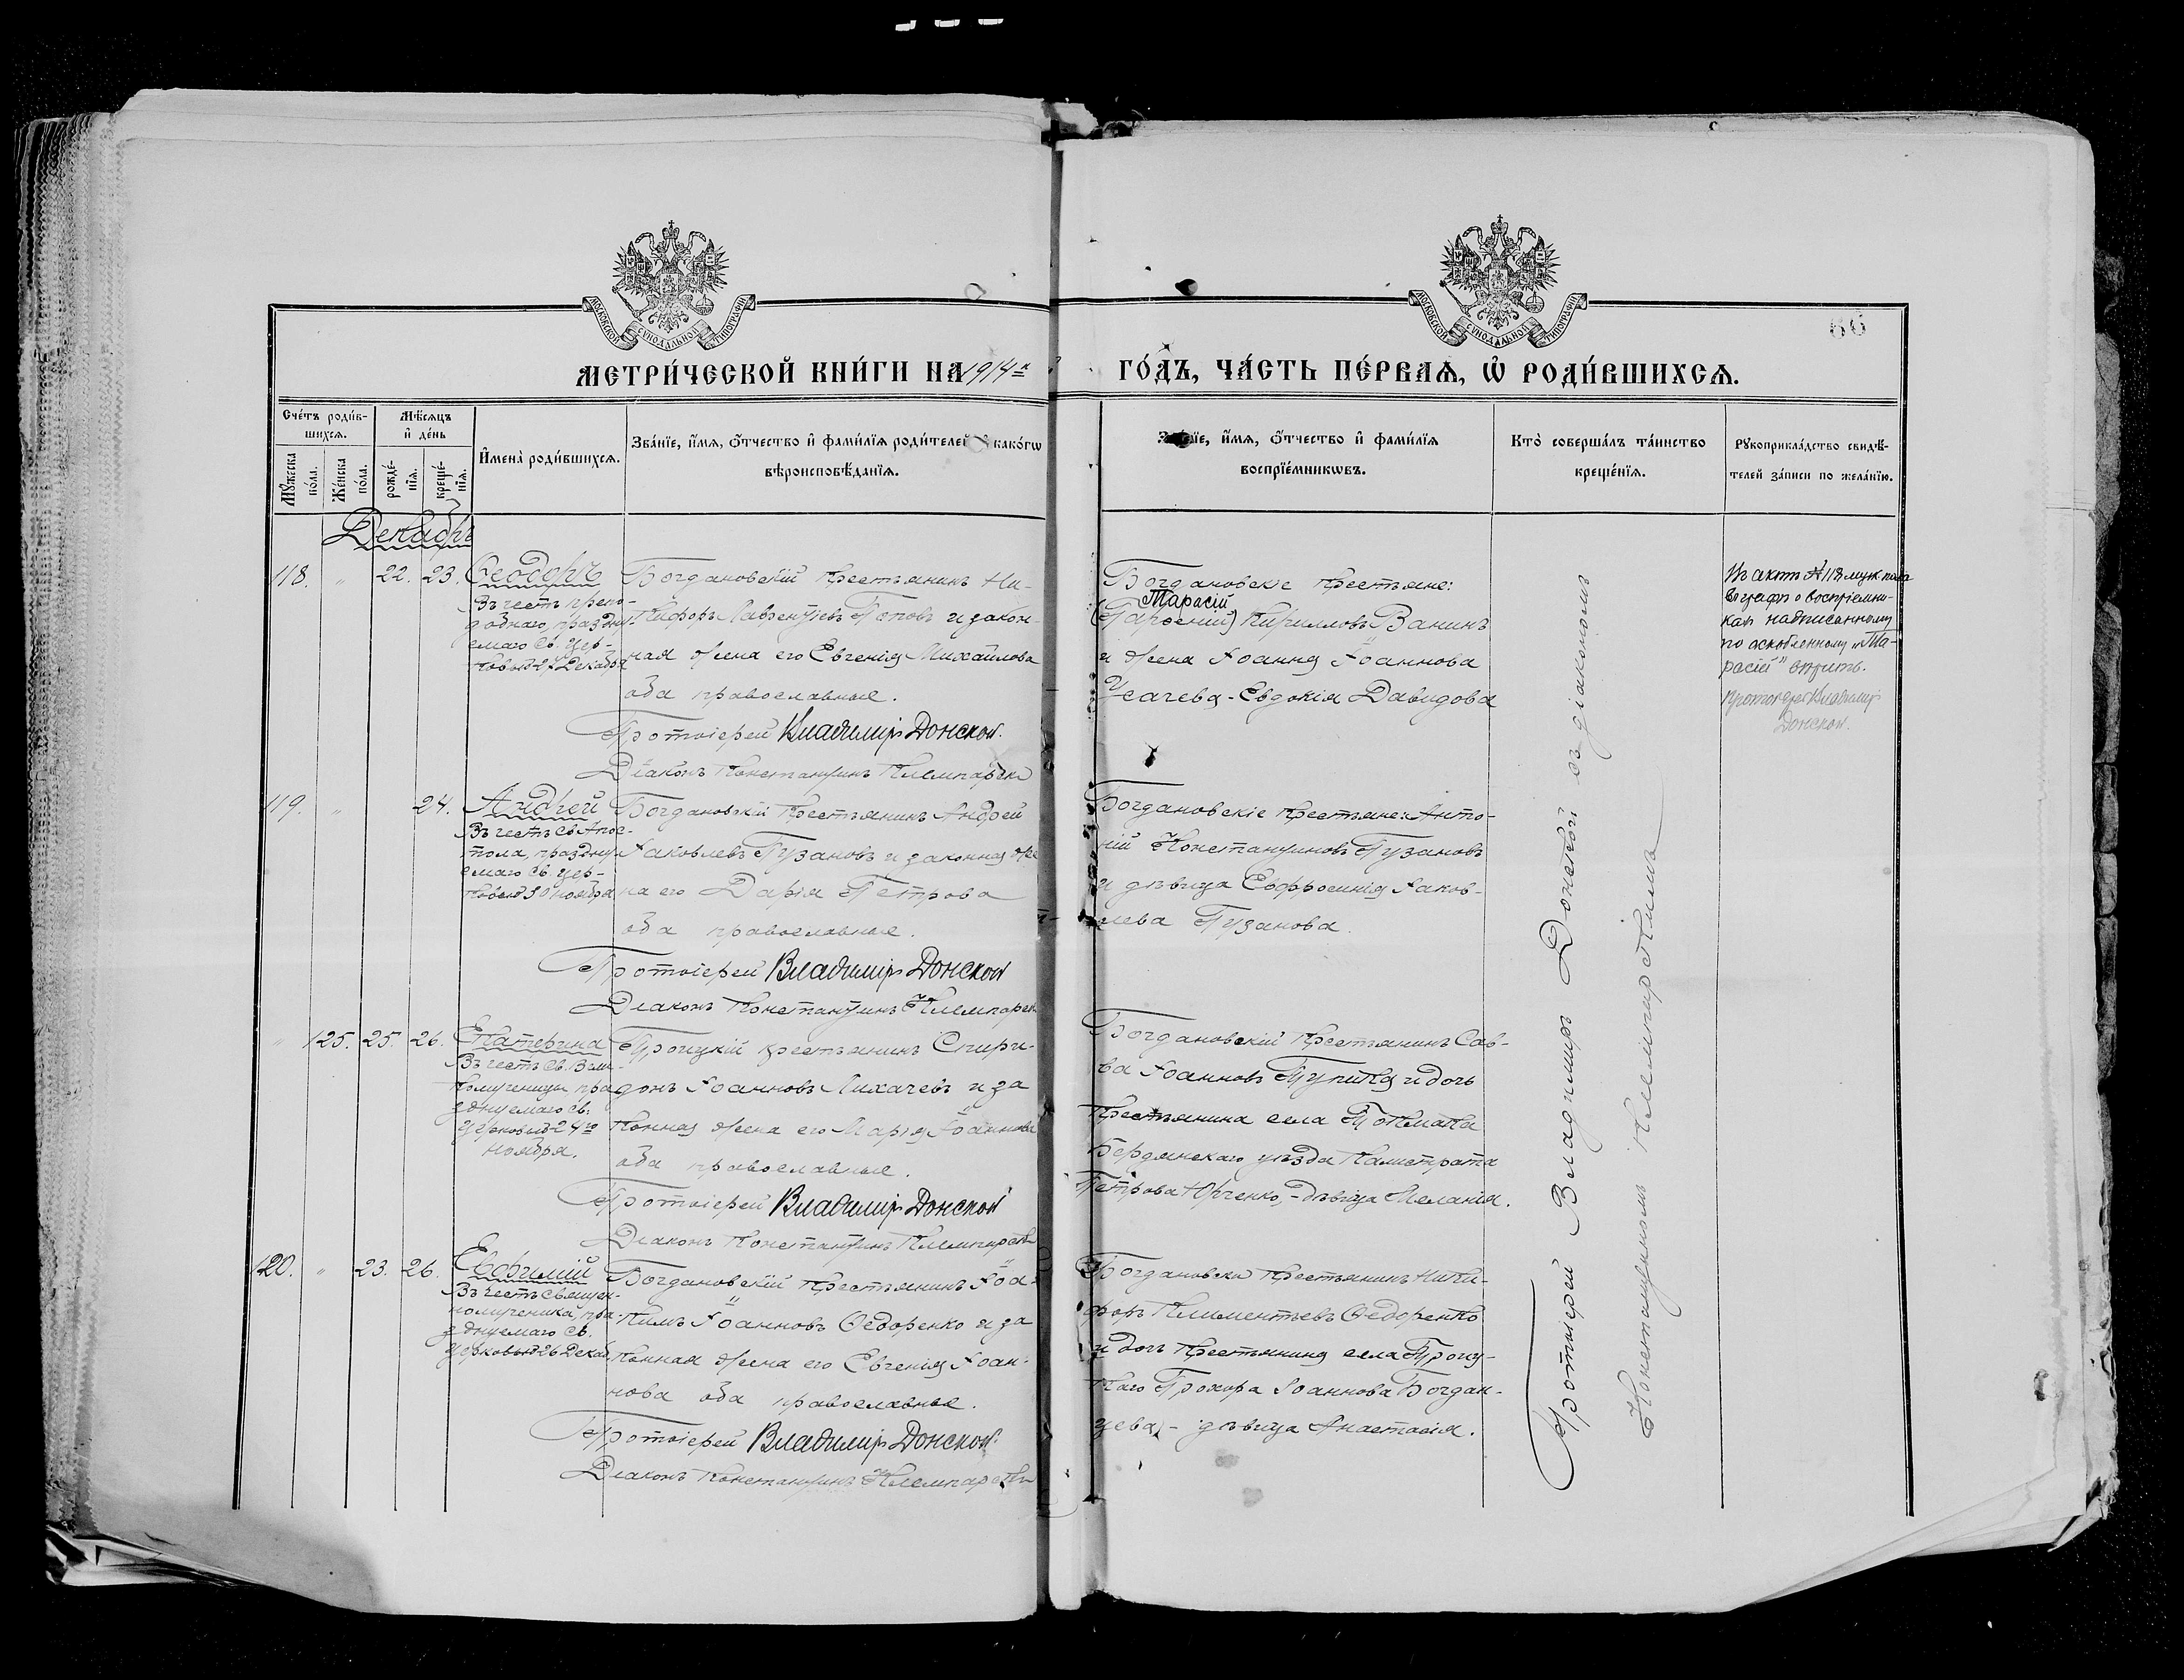 МОСКОВСКОЙ СѴНОДАЛЬНОЙ ТИПОГРАФІИ
МОСКОВСКОЙ СѴНОДАЛЬНОЙ ТИПОГРАФІИ
66
МЕТРИ́ЧЕСКОЙ КНИ́ГИ НА 1914й
ГО́ДЪ, ЧА́СТЬ ПЕ́РВАѦ, Ѡ҆ РОДИ́ВШИХСѦ.
Сче́тъ роди́в-
шихсѧ.
Мꙋ́жеска
по́ла.
Же́нска
по́ла.
Мѣ́сѧцъ
и҆ де́нь
рожде́-
нїѧ.
креще́-
нїѧ.
И҆мена̀ роди́вшихсѧ.
Зва́нїе, и҆́мѧ, ѻ҆́тчество и҆ фамилїѧ роди́телей и҆ како́гѡ
вѣроисповѣ́данїѧ.
Зва́нїе, и҆́мѧ, ѻ҆́тчество и҆ фами́лїѧ
воспрїе́мникѡвъ.
Кто̀ соверша́лъ та́инство
креще́нїѧ.
Рꙋкоприкла́дство свидѣ́-
телей за́писи по жела́нїю.
Декабрь
118. " 22. 23.
Ѳеодоръ
Въ честь препо-
добнаго, праздну-
емаго Св. Цер-
ковью 27 Декабря
Богдановскій крестьянинъ Ни-
кифоръ Лаврентіевъ Поповъ и закон-
ная жена его Евгенія Михайлова
оба православные.
Протоіерей Владиміръ Донской.
Діаконъ Константинъ
Богдановскіе крестьяне:
Тарасій
Кирилловъ Ванинъ
и жена Іоанна Іоаннова
Усачева - Евдокія Давидова
Въ актѣ № 118 муж. пола
въ графѣ о воспріемни-
кахъ надписанному
по оскобленному „Та-
расій" вѣрить.
Протоіерей Владиміръ
Донской.
119. " 24.
Андрей
Въ честь Св. Апос-
тола, праздну-
емаго Св. Цер-
ковью 30 ноября
Богдановскій крестьянинъ Андрей
Іаковлевъ Пузановъ и законная же
на его Дарія Петрова
оба православные.
Протоіерей Владиміръ Донской
Діаконъ Константинъ
Богдановскіе крестьяне: Анто-
ній Константиновъ Пузановъ
и дѣвица Евфросинія Іаков-
лева Пузанова.
" 125. 25. 26.
Екатерина
Въ честь Св. Вели-
комученицы пра
зднуемаго Св.
Церковью 24го
Ноября.
Троицкій крестьянинъ Спири-
донъ Іоанновъ Лихачевъ и за
конная жена его Марія Іоаннова
оба православные.
Протоіерей Владиміръ Донской
Діаконъ Константинъ
Богдановскій крестьянинъ Сав-
ва Іоанновъ Тупика и дочь
крестьянина села Токмака
Бердянскаго уѣзда Калистрата
Петрова Юрченко, - дѣвица Меланія.
120. " 23. 26.
Евфимій
Въ честь Священ-
номученика, пра-
зднуемаго Св.
Церковью 26 Декаб.
Богдановскій крестьянинъ Іоа-
кимъ Іоанновъ Ѳедоренко и за
конная жена его Евгенія Іоан-
нова оба православные.
Протоіерей Владиміръ Донской.
Діаконъ Константинъ
Богдановскій крестьянинъ Ники-
форъ Климентьевъ Ѳедоренко
и дочь крестьянина села Троиц-
каго Прохора Іоаннова Богдан-
цева, - дѣвица Анастасія.
Протоіерей Владиміръ Донской съ діакономъ
Константиномъ